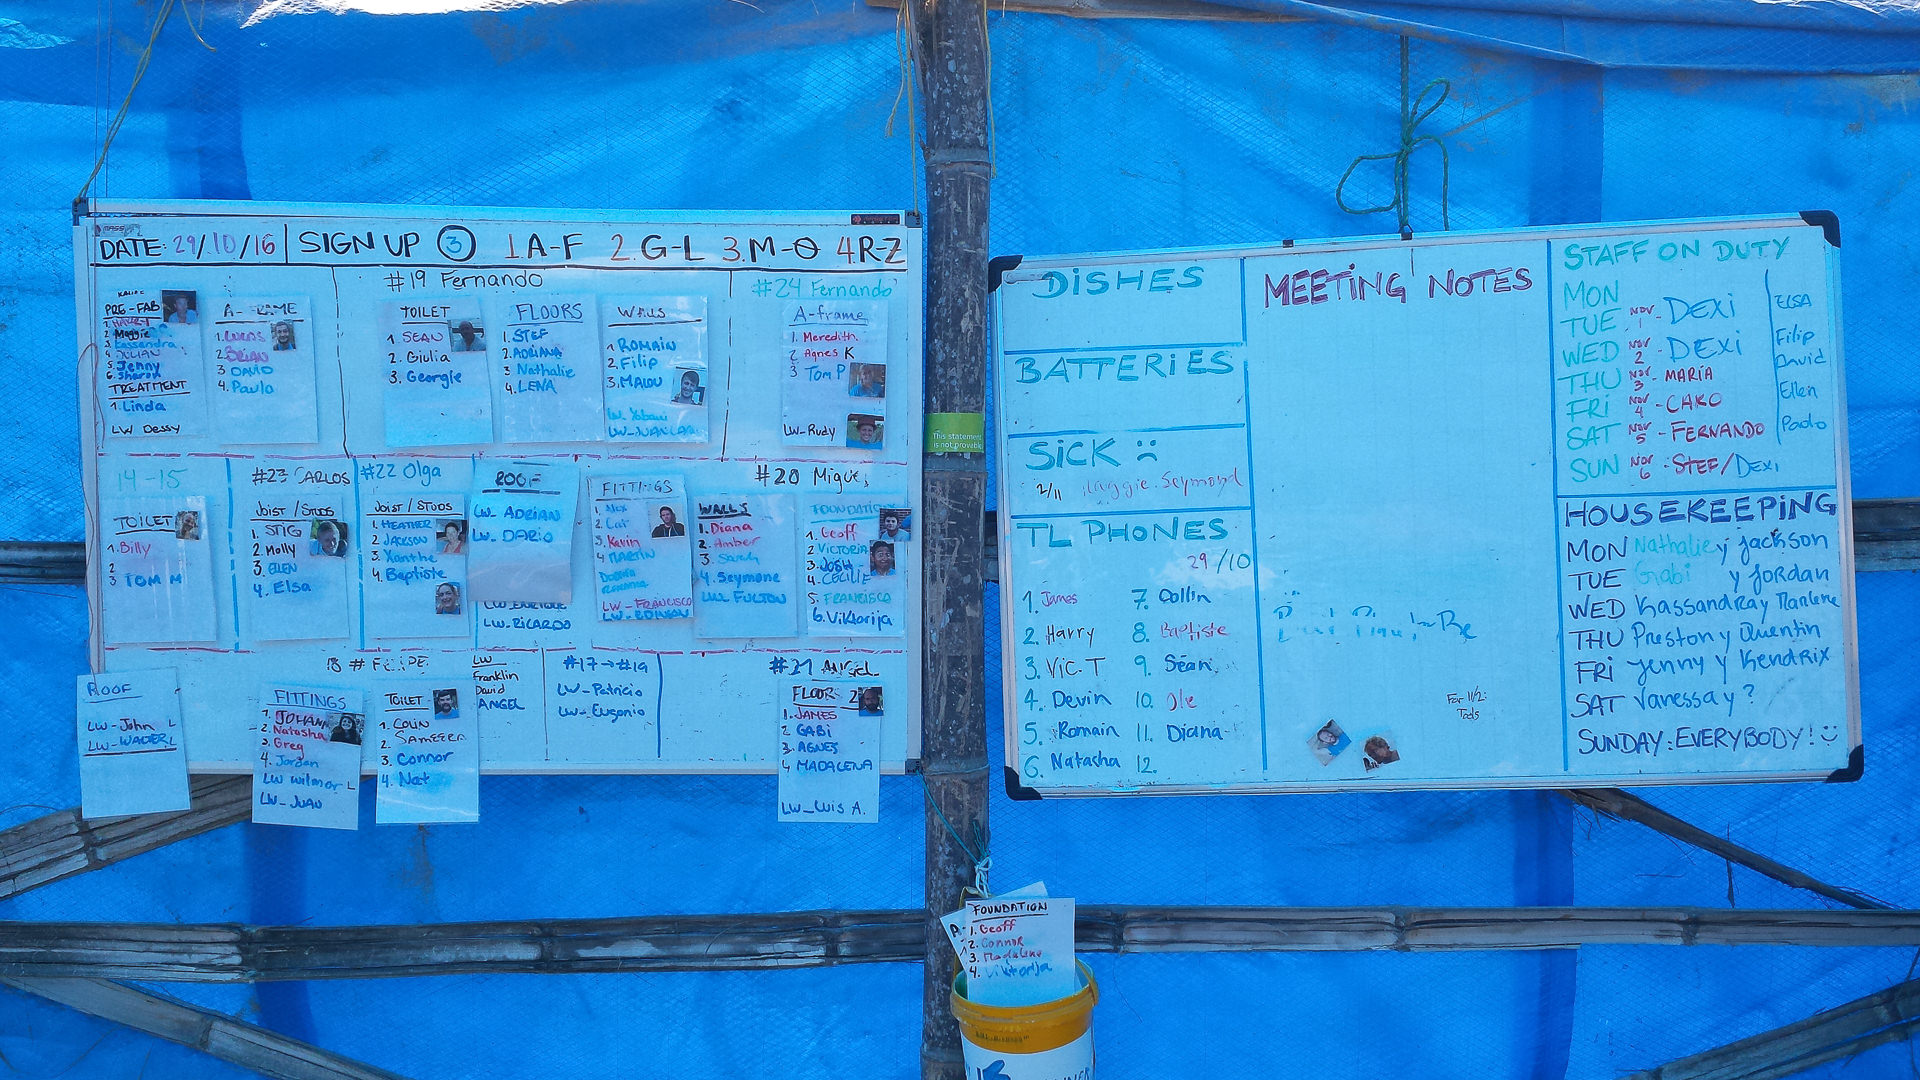 DATE: 29/10/16 SIGN UP 3 1 A-F 2.G-L 3.M-O 4 R-Z
#19 Fernando
#24 Fernando
PRE-FAB
1. HARRY
2. Maggie
3. Kassandra
4. JULIAN
5. Jenny
6. Sharon
TREATMENT
1. Linda
LW Dessy
1. LUCAS
2. BRIAN
3 DAVID
4. Paulo
TOILET
1. SEAN
2. Giulia
3. Georgie
FLOORS
1. STEF
2. ADRIANA
3. Nathalie
4. LENA
WALLS
1 ROMAIN
2. Filip
3. MALOU
A-frame
1. Meredith
2 Agnes K
3 Tom P
LW-Rudy
14-15
TOILET
1. Billy
2
3 TOM M
#23 CARLOS
JOIST/STUDS
1. STIG
2 Molly
3. ELLEN
4. Elsa
#22 Olga
JOIST/STUDS
1. HEATHER
2. JACKSON
3. Xanthe
4. Baptiste
ROOF
LW_ ADRIAN
LW_ DARIO
LW_ENRIQUE
LW_RICARDO
FITTINGS
1. Alex
2. Cat
3. Kevin
4. MARTIN
LW-FRANCISCO
LW-EDINSON
#20 Miguel
WALLS
1. Diana
2. Amber
3. Sarah
4. Seymone
LW_ FULTON
FOUNDATION
1. Geoff
2 VICTORIA
3. JOSH
4. CECILIE
5. FRANCISCO
6. Viktorija
ROOF
LW-John L
LW-WALTER L
18 # FELIPE
FITTINGS
1. JOHANN
2. Natasha
3. Greg
4. Jordan
LW Wilmor L
LW_JUAN
TOILET
1. COLIN
2. SAMEERA
3. Connor
4. Nat
LW
Franklin
David
ANGEL
#17→#19
LW-Patricio
LW-Eugenio
#21 ANGEL
FLOOR 2
1. JAMES
2 GABI
3. AGNES
4 MADALENA
LW_LUIS A.
This statement
is not provable
DISHES
BATTERIES
SICK :(
2/11 Maggie. Seymond
TL PHONES
29/10
1. James
2. Harry
3. VIC. T
4. Devin
5. Romain
6. Natasha
7. Collin
8. Baptiste
9. Sean
10. Ole
11. Diana
12.
MEETING NOTES
For 11/2:
STAFF ON DUTY
MON
TUE NOV 1 - DEXI
WED NOV 2 - DEXI
THU NOV 3 - MARIA
FRI NOV 4 - CAKO
SAT NOV 5 - FERNANDO
SUN NOV 6 - STEF/DEXI
ELSA
Filip
David
Ellen
Paolo
HOUSEKEEPING
MON Nathalie y Jackson
TUE Gabi y Jordan
WED Kassandra y Marlene
THU Preston y Quentin
FRI Jenny y Kendrix
SAT Vanessa y ?
SUNDAY: EVERYBODY! :)
FOUNDATION
1. Geoff
2. Connor
3. Madalena
4. Viktorija